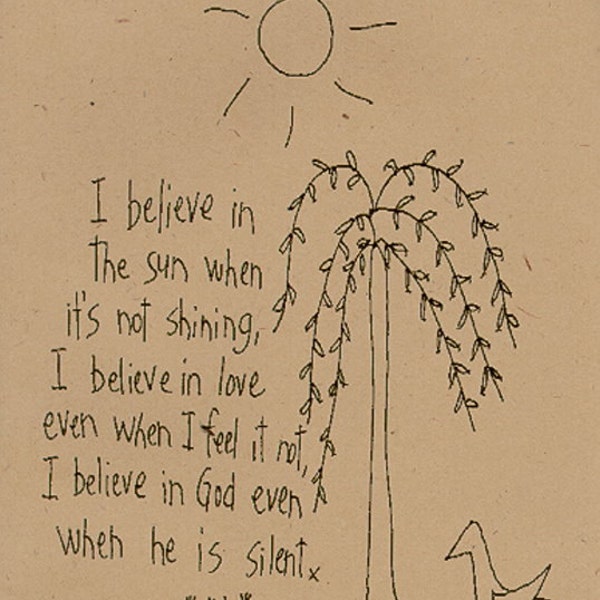 I believe in
the sun when
it's not shining,
I believe in love
even when I feel it not,
I believe in God even
when he is silent.